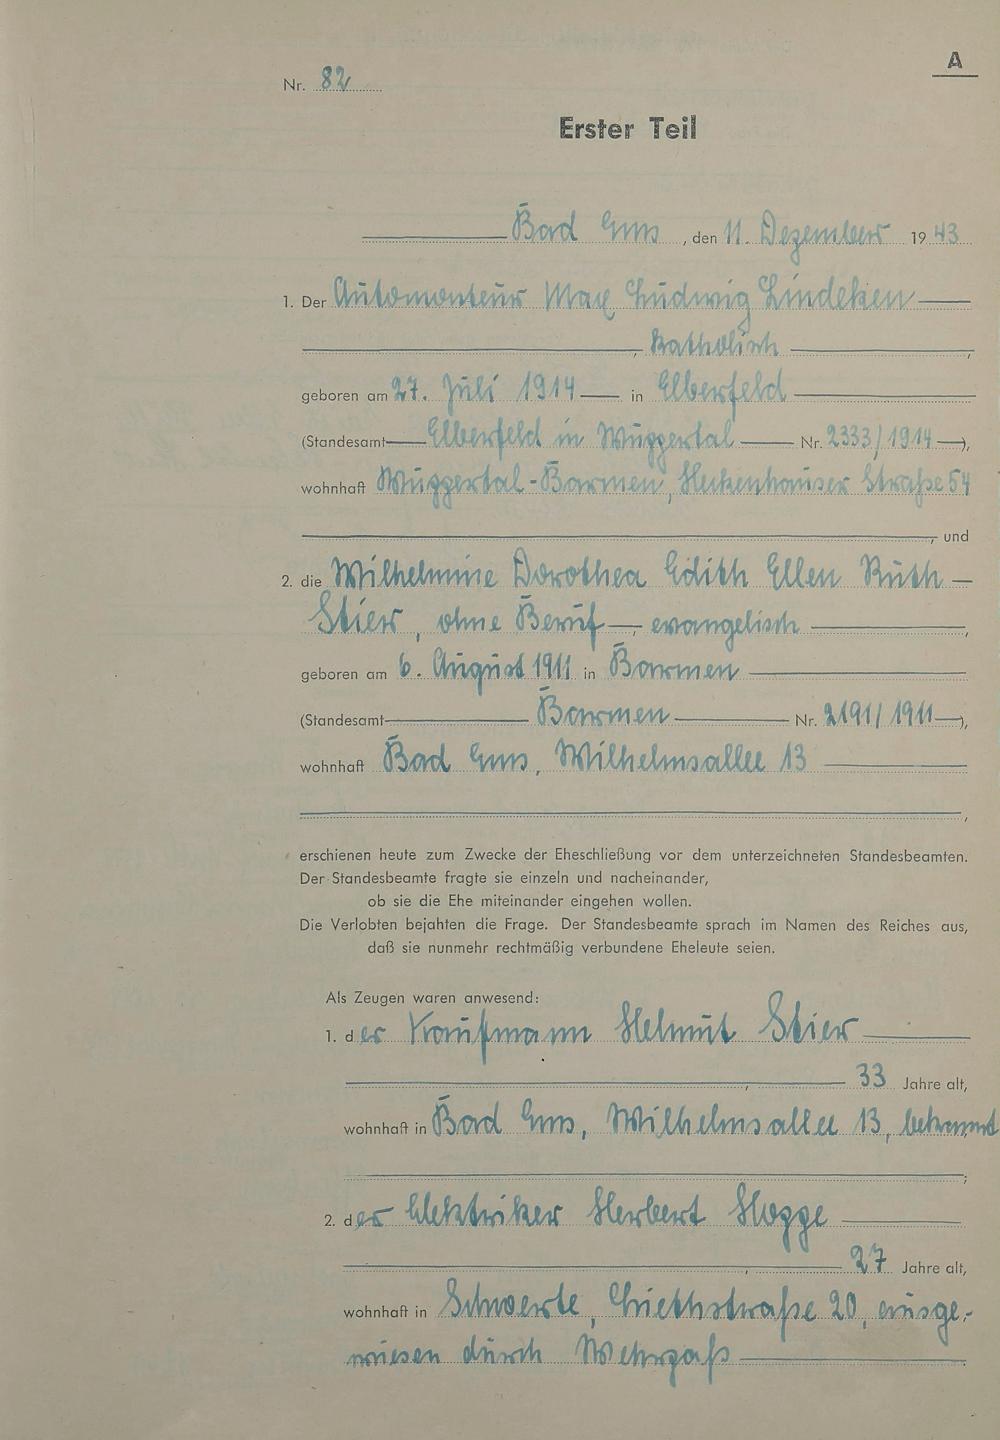 A
Nr. 82
Erster Teil
Bad Ems, den 11. Dezember 1943
1. Der Automonteur Max Ludwig Lindeken
, katholisch ,
geboren am 27. Juli 1914 in Elberfeld
(Standesamt Elberfeld in Wuppertal Nr. 2333/1914 ),
wohnhaft Wuppertal-Barmen, Heckenhauser Straße 54
, und
2. die Wilhelmine Dorothea Edith Ellen Ruth
Stier, ohne Beruf, evangelisch ,
geboren am 6. August 1911 in Barmen
(Standesamt Barmen Nr. 2191/1911 ),
wohnhaft Bad Ems, Wilhelmsallee 13
,
erschienen heute zum Zwecke der Eheschließung vor dem unterzeichneten Standesbeamten.
Der Standesbeamte fragte sie einzeln und nacheinander,
ob sie die Ehe miteinander eingehen wollen.
Die Verlobten bejahten die Frage. Der Standesbeamte sprach im Namen des Reiches aus,
daß sie nunmehr rechtmäßig verbundene Eheleute seien.
Als Zeugen waren anwesend:
1. der Kaufmann Helmut Stier
, 33 Jahre alt,
wohnhaft in Bad Ems, Wilhelmsallee 13, bekannt
;
2. der Elektriker Herbert Hogge
, 27 Jahre alt,
wohnhaft in Schwerte, straße 20, ausge-
wiesen durch Wehrpaß